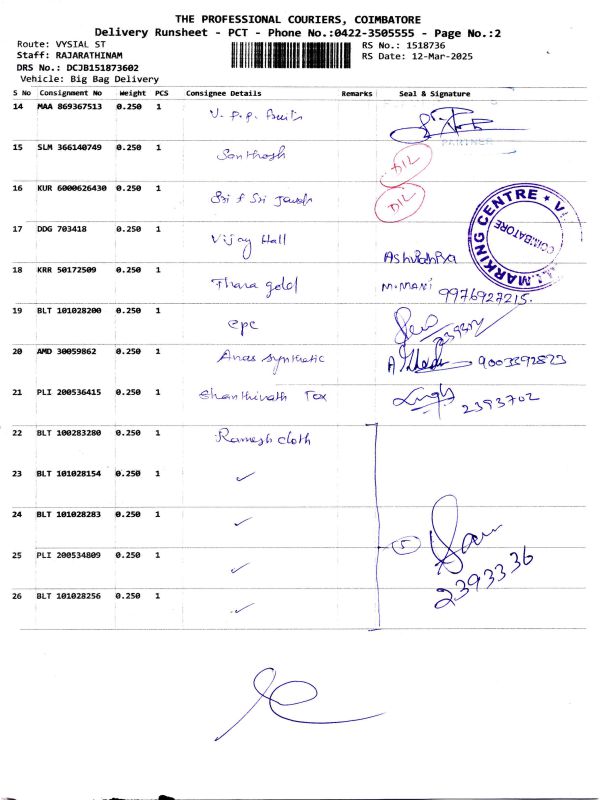 THE PROFESSIONAL COURIERS, COIMBATORE
Delivery Runsheet - PCT - Phone No.:0422-3505555 - Page No.:2
Route: VYSIAL ST RS No.: 1518736
Staff: RAJARATHINAM RS Date: 12-Mar-2025
DRS No.: DCJB151873602
Vehicle: Big Bag Delivery
S No Consignment No Weight PCS Consignee Details Remarks Seal & Signature
14 MAA 869367513 0.250 1 V. P. P.
PARTNER
15 SLM 366140749 0.250 1 Santhosh D/L
16 KUR 6000626430 0.250 1 Sri & Sri D/L
MARKING CENTRE ★ V
COIMBATORE
17 DDG 703418 0.250 1 Vijay Hall
18 KRR 50172509 0.250 1 Thara gold M.MANI 9976927215.
19 BLT 101028200 0.250 1 epc
20 AMD 30059862 0.250 1 Anas synthetic 9003392823
21 PLI 200536415 0.250 1 Shanthinath Tex 2393702
22 BLT 100283280 0.250 1 Ramesh cloth
23 BLT 101028154 0.250 1 ✓
24 BLT 101028283 0.250 1 ✓
5
25 PLI 200534809 0.250 1 ✓
2393336
26 BLT 101028256 0.250 1 ✓